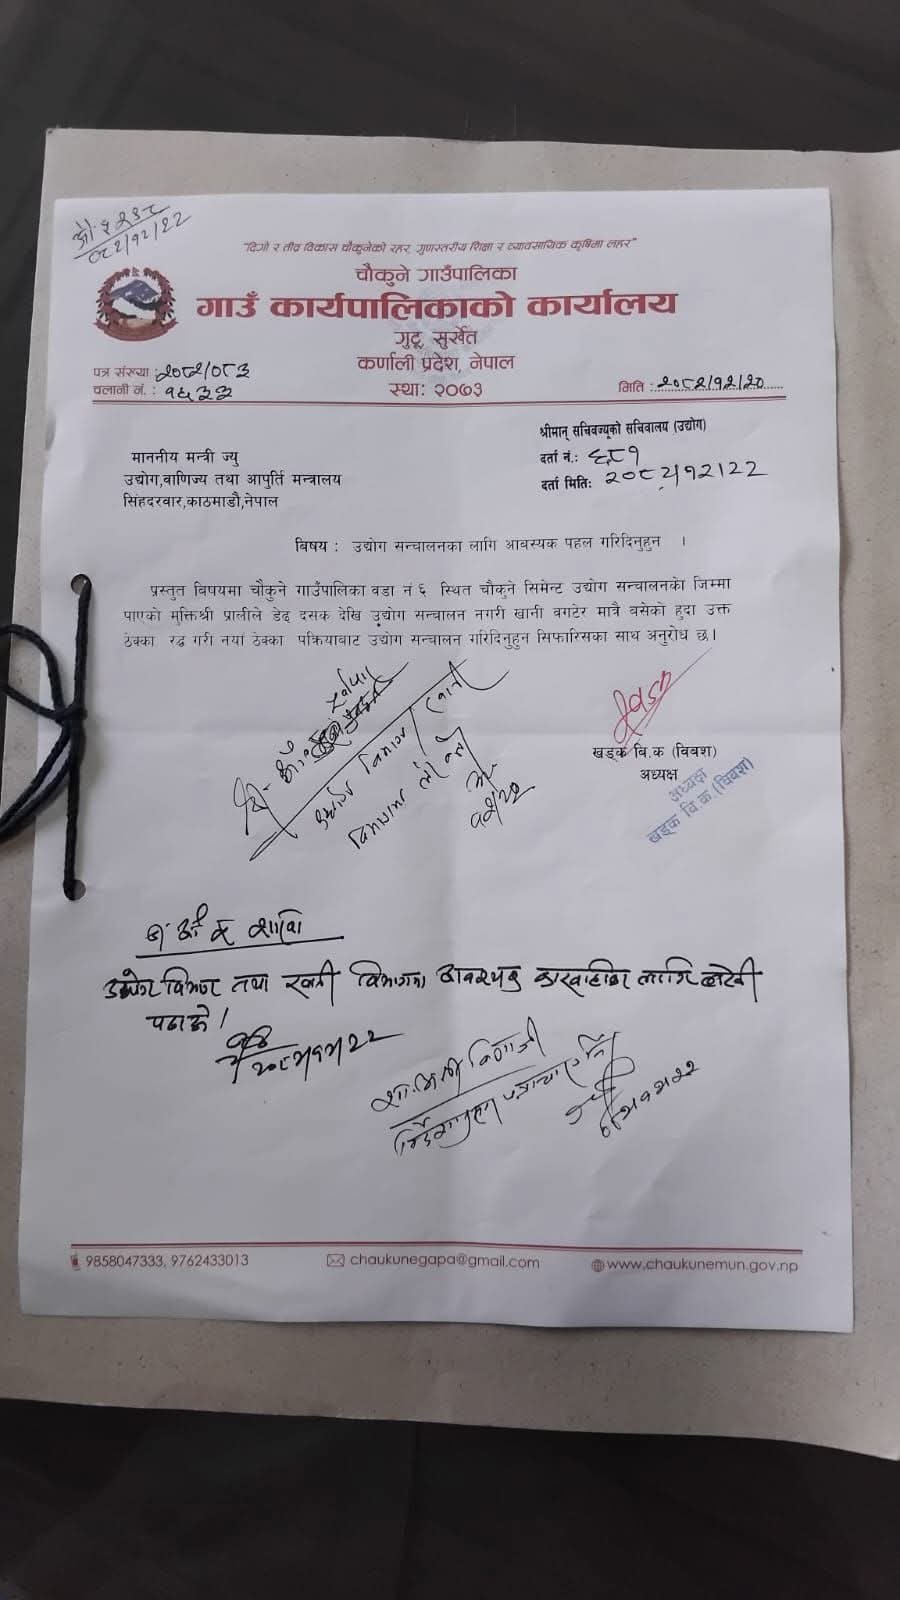 "दिगो र तीव्र विकास चौकुनेको रहर, गुणस्तरीय शिक्षा र व्यावसायिक कृषिमा लहर"
चौकुने गाउँपालिका
गाउँ कार्यपालिकाको कार्यालय
गुटू, सुर्खेत
कर्णाली प्रदेश, नेपाल
स्था: २०७३
पत्र संख्या : २०८२/०८३
चलानी नं. : १६३३
मिति : २०८२/१२/२०
श्रीमान् सचिवज्यूको सचिवालय (उद्योग)
दर्ता नं.: ६८१
दर्ता मिति: २०८२/१२/22
माननीय मन्त्री ज्यु
उद्योग,वाणिज्य तथा आपुर्ति मन्त्रालय
सिंहदरवार,काठमाडौ,नेपाल
बिषय : उद्योग सन्चालनका लागि आबस्यक पहल गरिदिनुहुन ।
प्रस्तुत बिषयमा चौकुने गाउँपालिका वडा नं ६ स्थित चौकुने सिमेन्ट उद्योग सन्चालनको जिम्मा
पाएको मुक्तिश्री प्रालीले डेढ दसक देखि उद्योग सन्चालन नगरी खानी वगटेर मात्रै वसेको हुदा उक्त
ठेक्का रद्ध गरी नयां ठेक्का पक्रियाबाट उद्योग सन्चालन गरिदिनुहुन सिफारिसका साथ अनुरोध छ।
खड्क बि.क (विबश)
अध्यक्ष
अध्यक्ष
खड्क वि.क (विबश)
उद्योग विभाग तथा खानी विभागमा आवश्यक कारवाहीका लागि
पठाउने।
9858047333, 9762433013
chaukunegapa@gmail.com
www.chaukunemun.gov.np